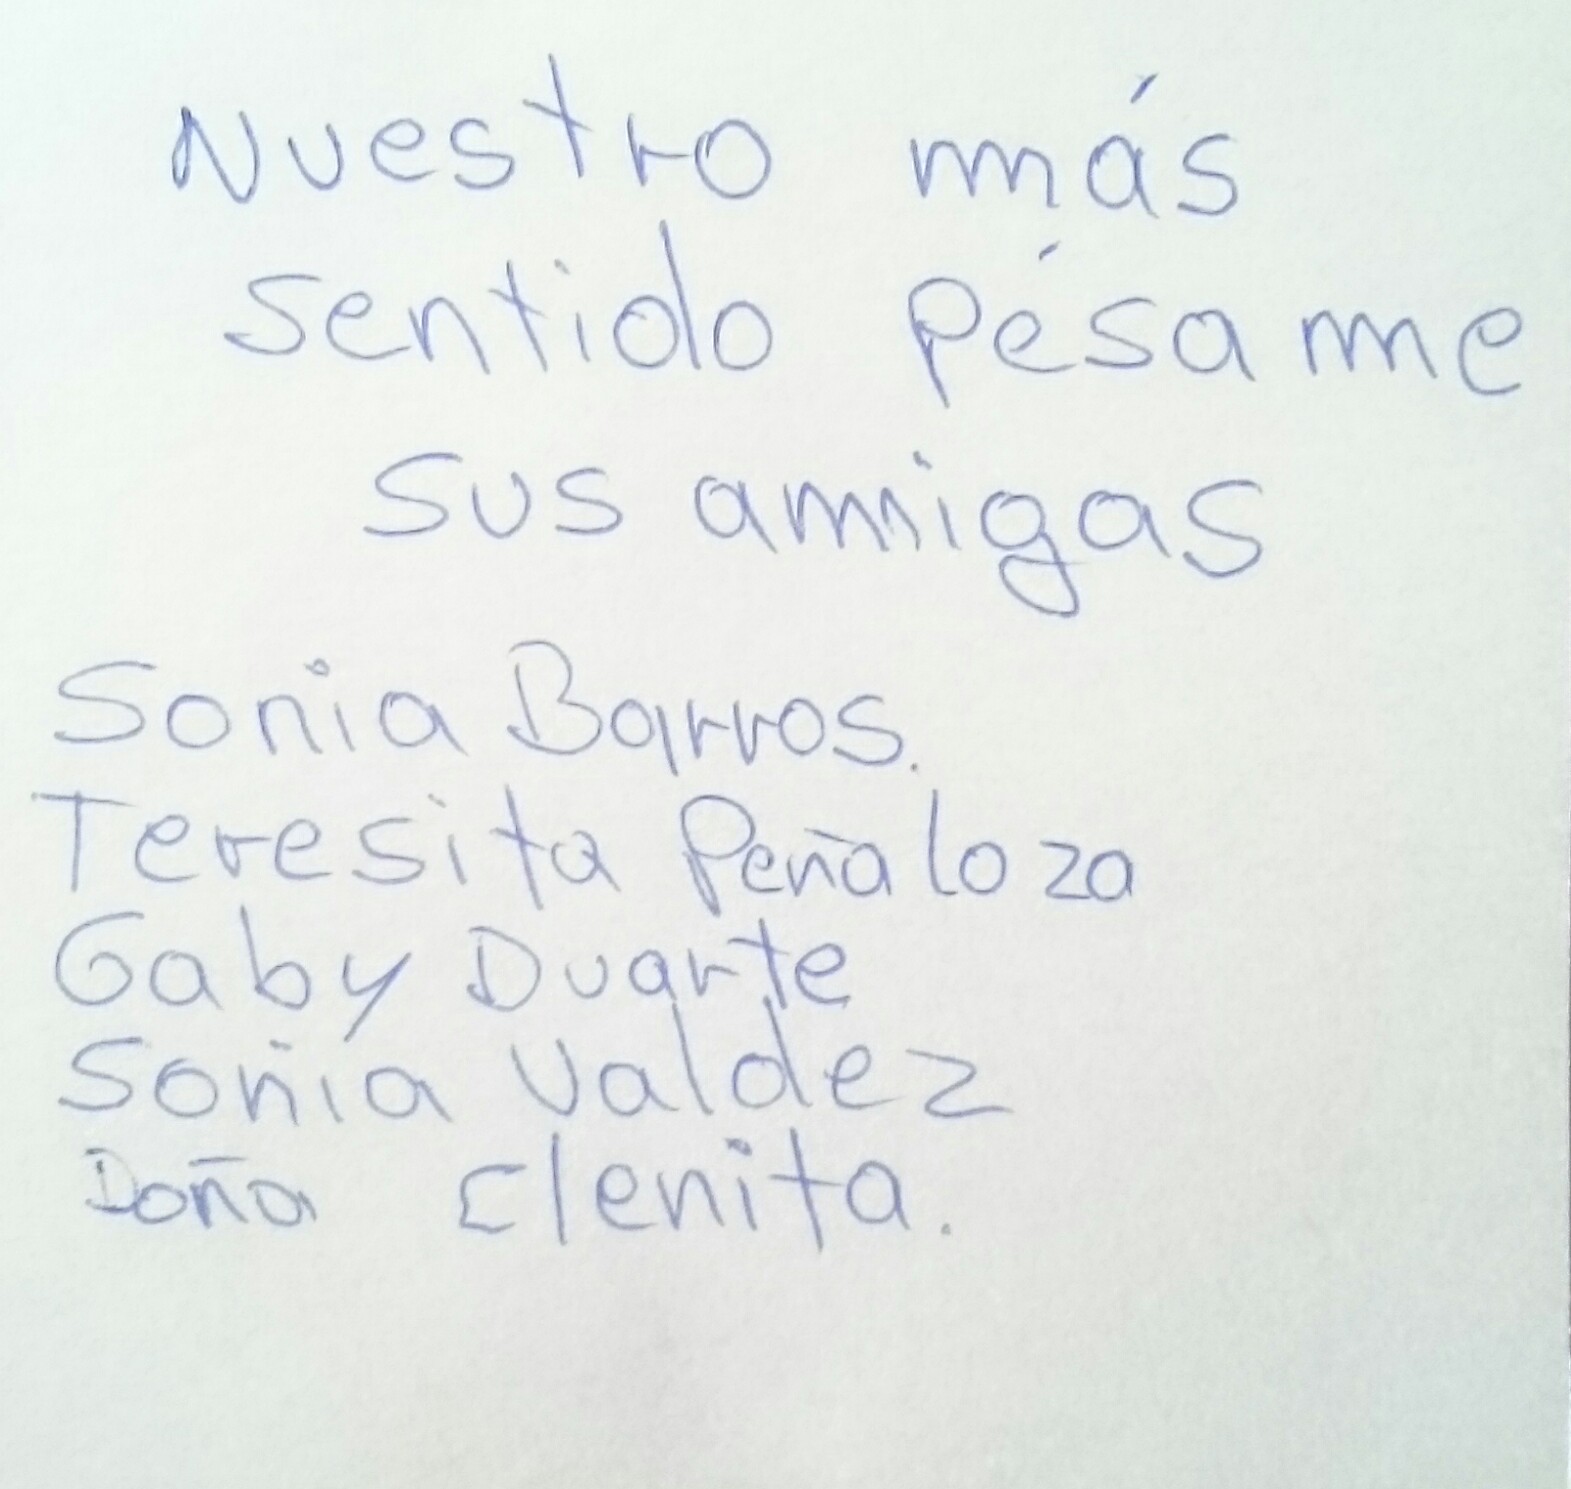 Nuestro más
sentido pésame
sus amigas
Sonia Barros.
Teresita Peñaloza
Gaby Duarte
Sonia Valdez
Doña Clenita.